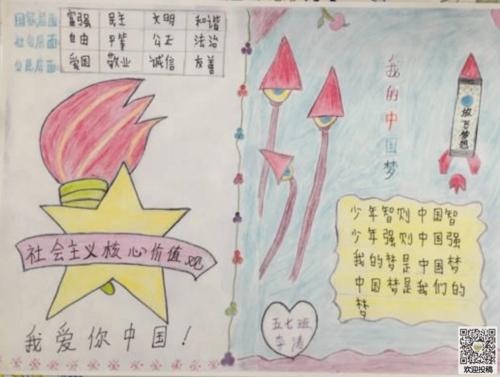 国家层面 富强 民主 文明 和谐
社会层面 自由 平等 公正 法治
公民层面 爱国 敬业 诚信 友善
社会主义核心价值观
我爱你中国!
我的中国梦
放飞梦想
少年智则中国智
少年强则中国强
我的梦是中国梦
中国梦是我们的
梦
五七班
李涛
欢迎投稿